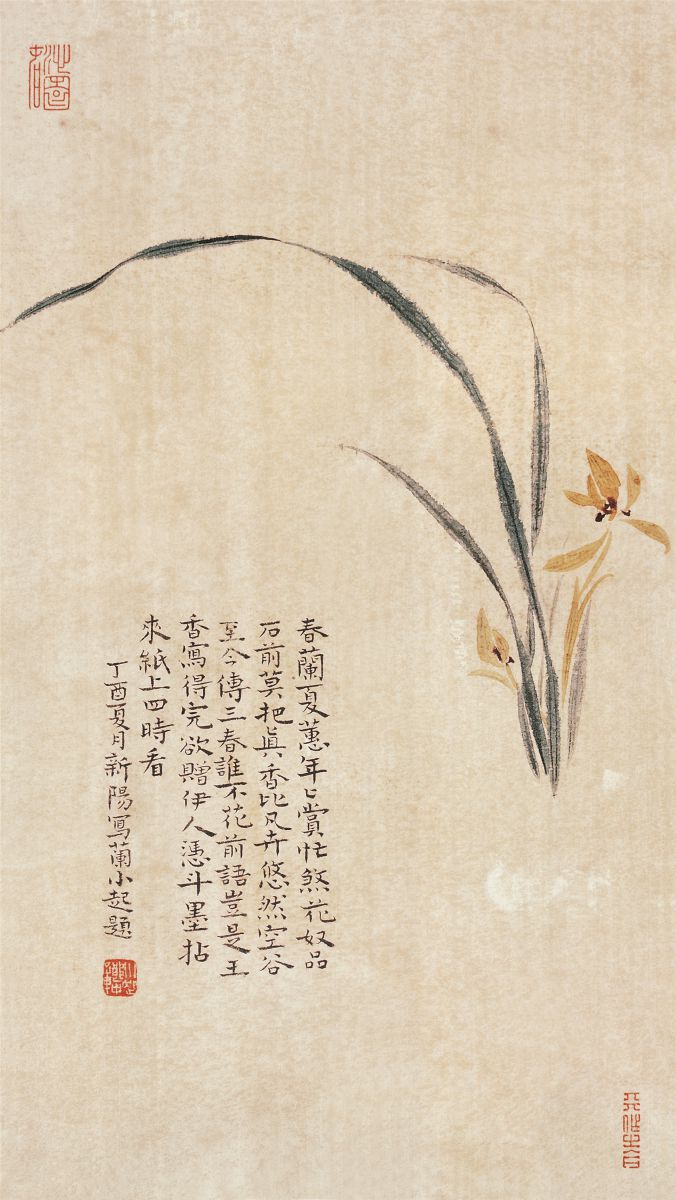 春蘭夏蕙年々賞忙煞花奴品
石前莫把眞香比凡卉悠然空谷
至今傳三春誰不花前語豈是王
香寫得完欲贈伊人憑斗墨拈
來紙上四時看
丁酉夏月新陽寫蘭小起題